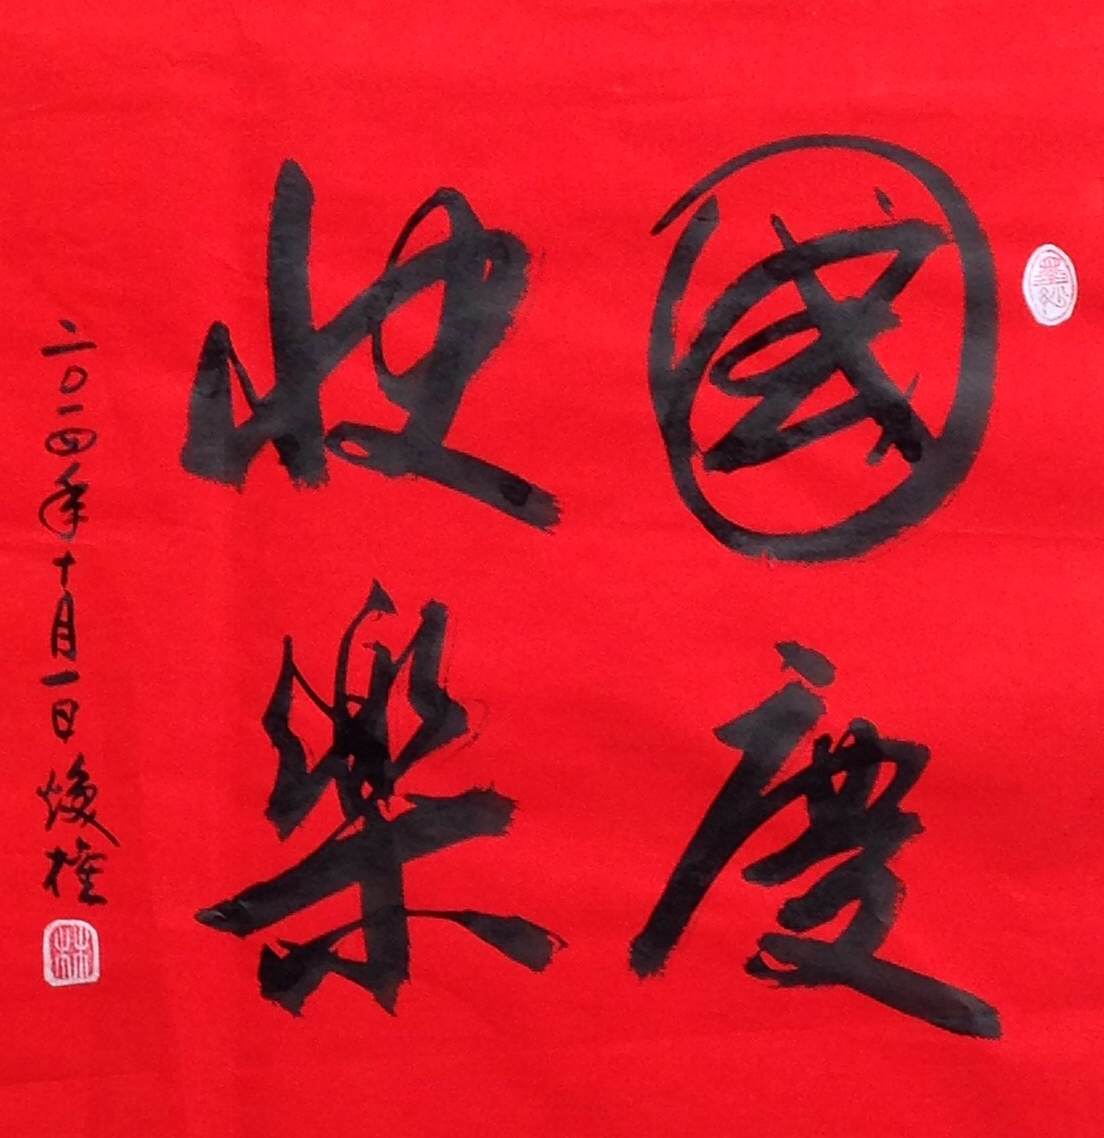 國慶
快樂
二〇一四年十月一日煥権
林